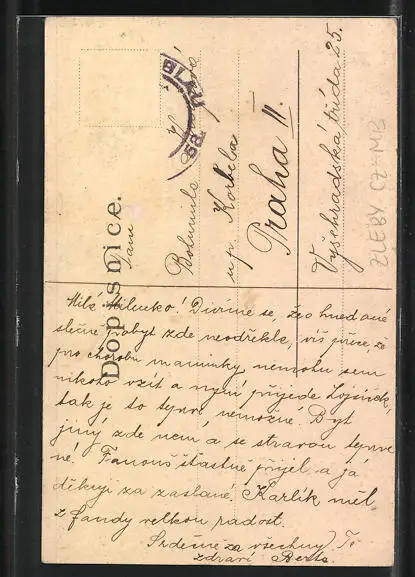 Dopisnice.
Paní
Bohumila
u p. Korbela
Praha II.
Vyšehradská třída 25.
ZLEBY CZ-MB
Milá Milenko! Divíme se, že hned
slečně pobyt zde neodřekla, víš přece, že
pro chorobu maminky nemohu sem
nikoho vzít a nyní přijede
tak je to teprve nemožné. Byt
jiný zde není a se stravou teprve
ne. Fanouš šťastně přijel a já
děkuji za zaslané. Karlík měl
z fandy velkou radost.
Srdečně za všechny Tě
zdraví Berta.